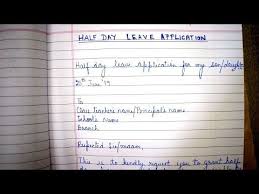 HALF DAY LEAVE APPLICATION
Half day leave application for my son/daughter
20th June'19
To
Class teacher's name/Principal's name
School's name
Branch
Respected Sir/maam,
This is to kindly request you to grant half